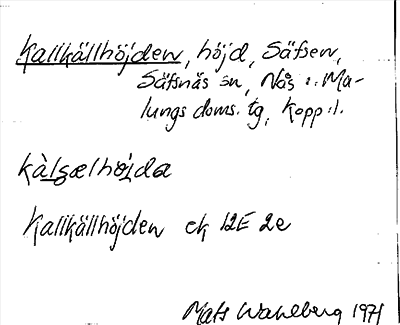 Kallkällhöjden, höjd, Säfsen,
Säfsnäs sn, Nås o. Ma-
lungs doms. tg, Kopp. l.
kàlsælhöjda
Kallkällhöjden ek 12E 2e
Mats Wahlberg 1971